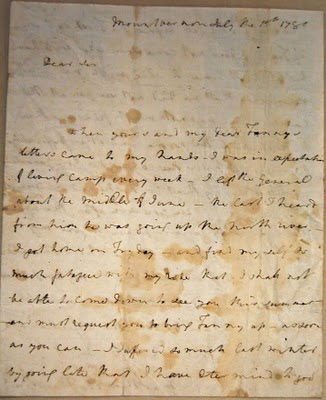 Mount vernon July the 18th 178
Dear sir
when yours and my dear Fanny's
letters came to my hands – I was in expectation
of living camp every week – I left the General
about the middle of June – the last I heard
from him he was going up the North river –
I got home on fryday – and find my self so
much fatigue with my ride that I shall not
be able to come down to see you this summer
and must request you to bring Fanny up – as soon
as you can – I sufered so much last winter
by going late that I have ter mind to go